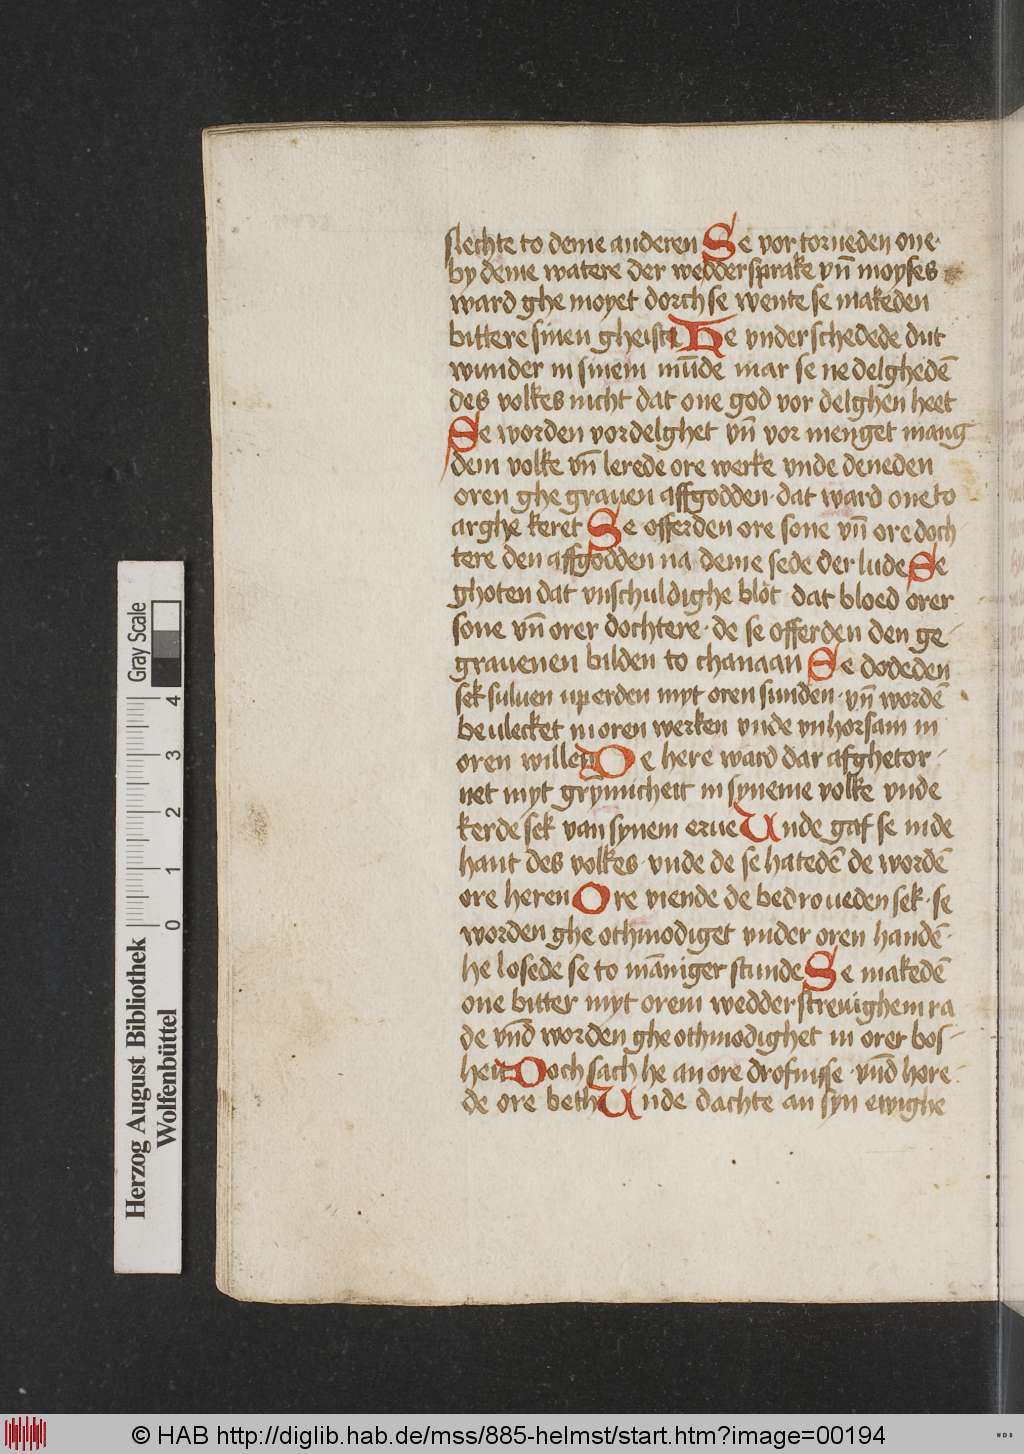 slechte to deme anderen Se vor torneden one·
by deme watere der weddersprake vn̄ moyses
ward ghe moyet dorch se wente se makeden
bittere sinen gheist He vnderschedede dut
wunder in sinem mūde mar se ne delghedē
des volkes nicht dat one god vor delghen heet
Se worden vordelghet vn̄ vor menget mang
dem volke vn̄ lerede ore werke vnde deneden
oren ghe grauen affgodden· dat ward one to
arghe keret Se offerden ore sone vn̄ ore doch
tere den affgodden na deme sede der lude Se
ghoten dat vnschuldighe blot dat bloed orer
sone vn̄ orer dochtere· de se offerden den ge-
grauenen bilden to chanaan Se dodeden
sek suluen up erden myt oren sunden· vn̄ wordē
beulecket in oren werken vnde vnhorsam in
oren willen De here ward dar afghetor-
net myt grymicheit in syneme volke vnde
kerde sek van synem erue Unde gaf se in de
hant des volkes· vnde de se hatedē de wordē
ore heren Ore viende de bedroueden sek· se
worden ghe othmodiget vnder oren handē·
he losede se to māniger stunde Se makedē
one bitter myt orem wedderstreuighem ra
de vn̄d worden ghe othmodighet in orer bos-
heit Doch sach he an ore drofnisse· vn̄d hore-
de ore beth Unde dachte an syn ewighe
Gray Scale
0 1 2 3 4
Herzog August Bibliothek
Wolfenbüttel
© HAB http://diglib.hab.de/mss/885-helmst/start.htm?image=00194